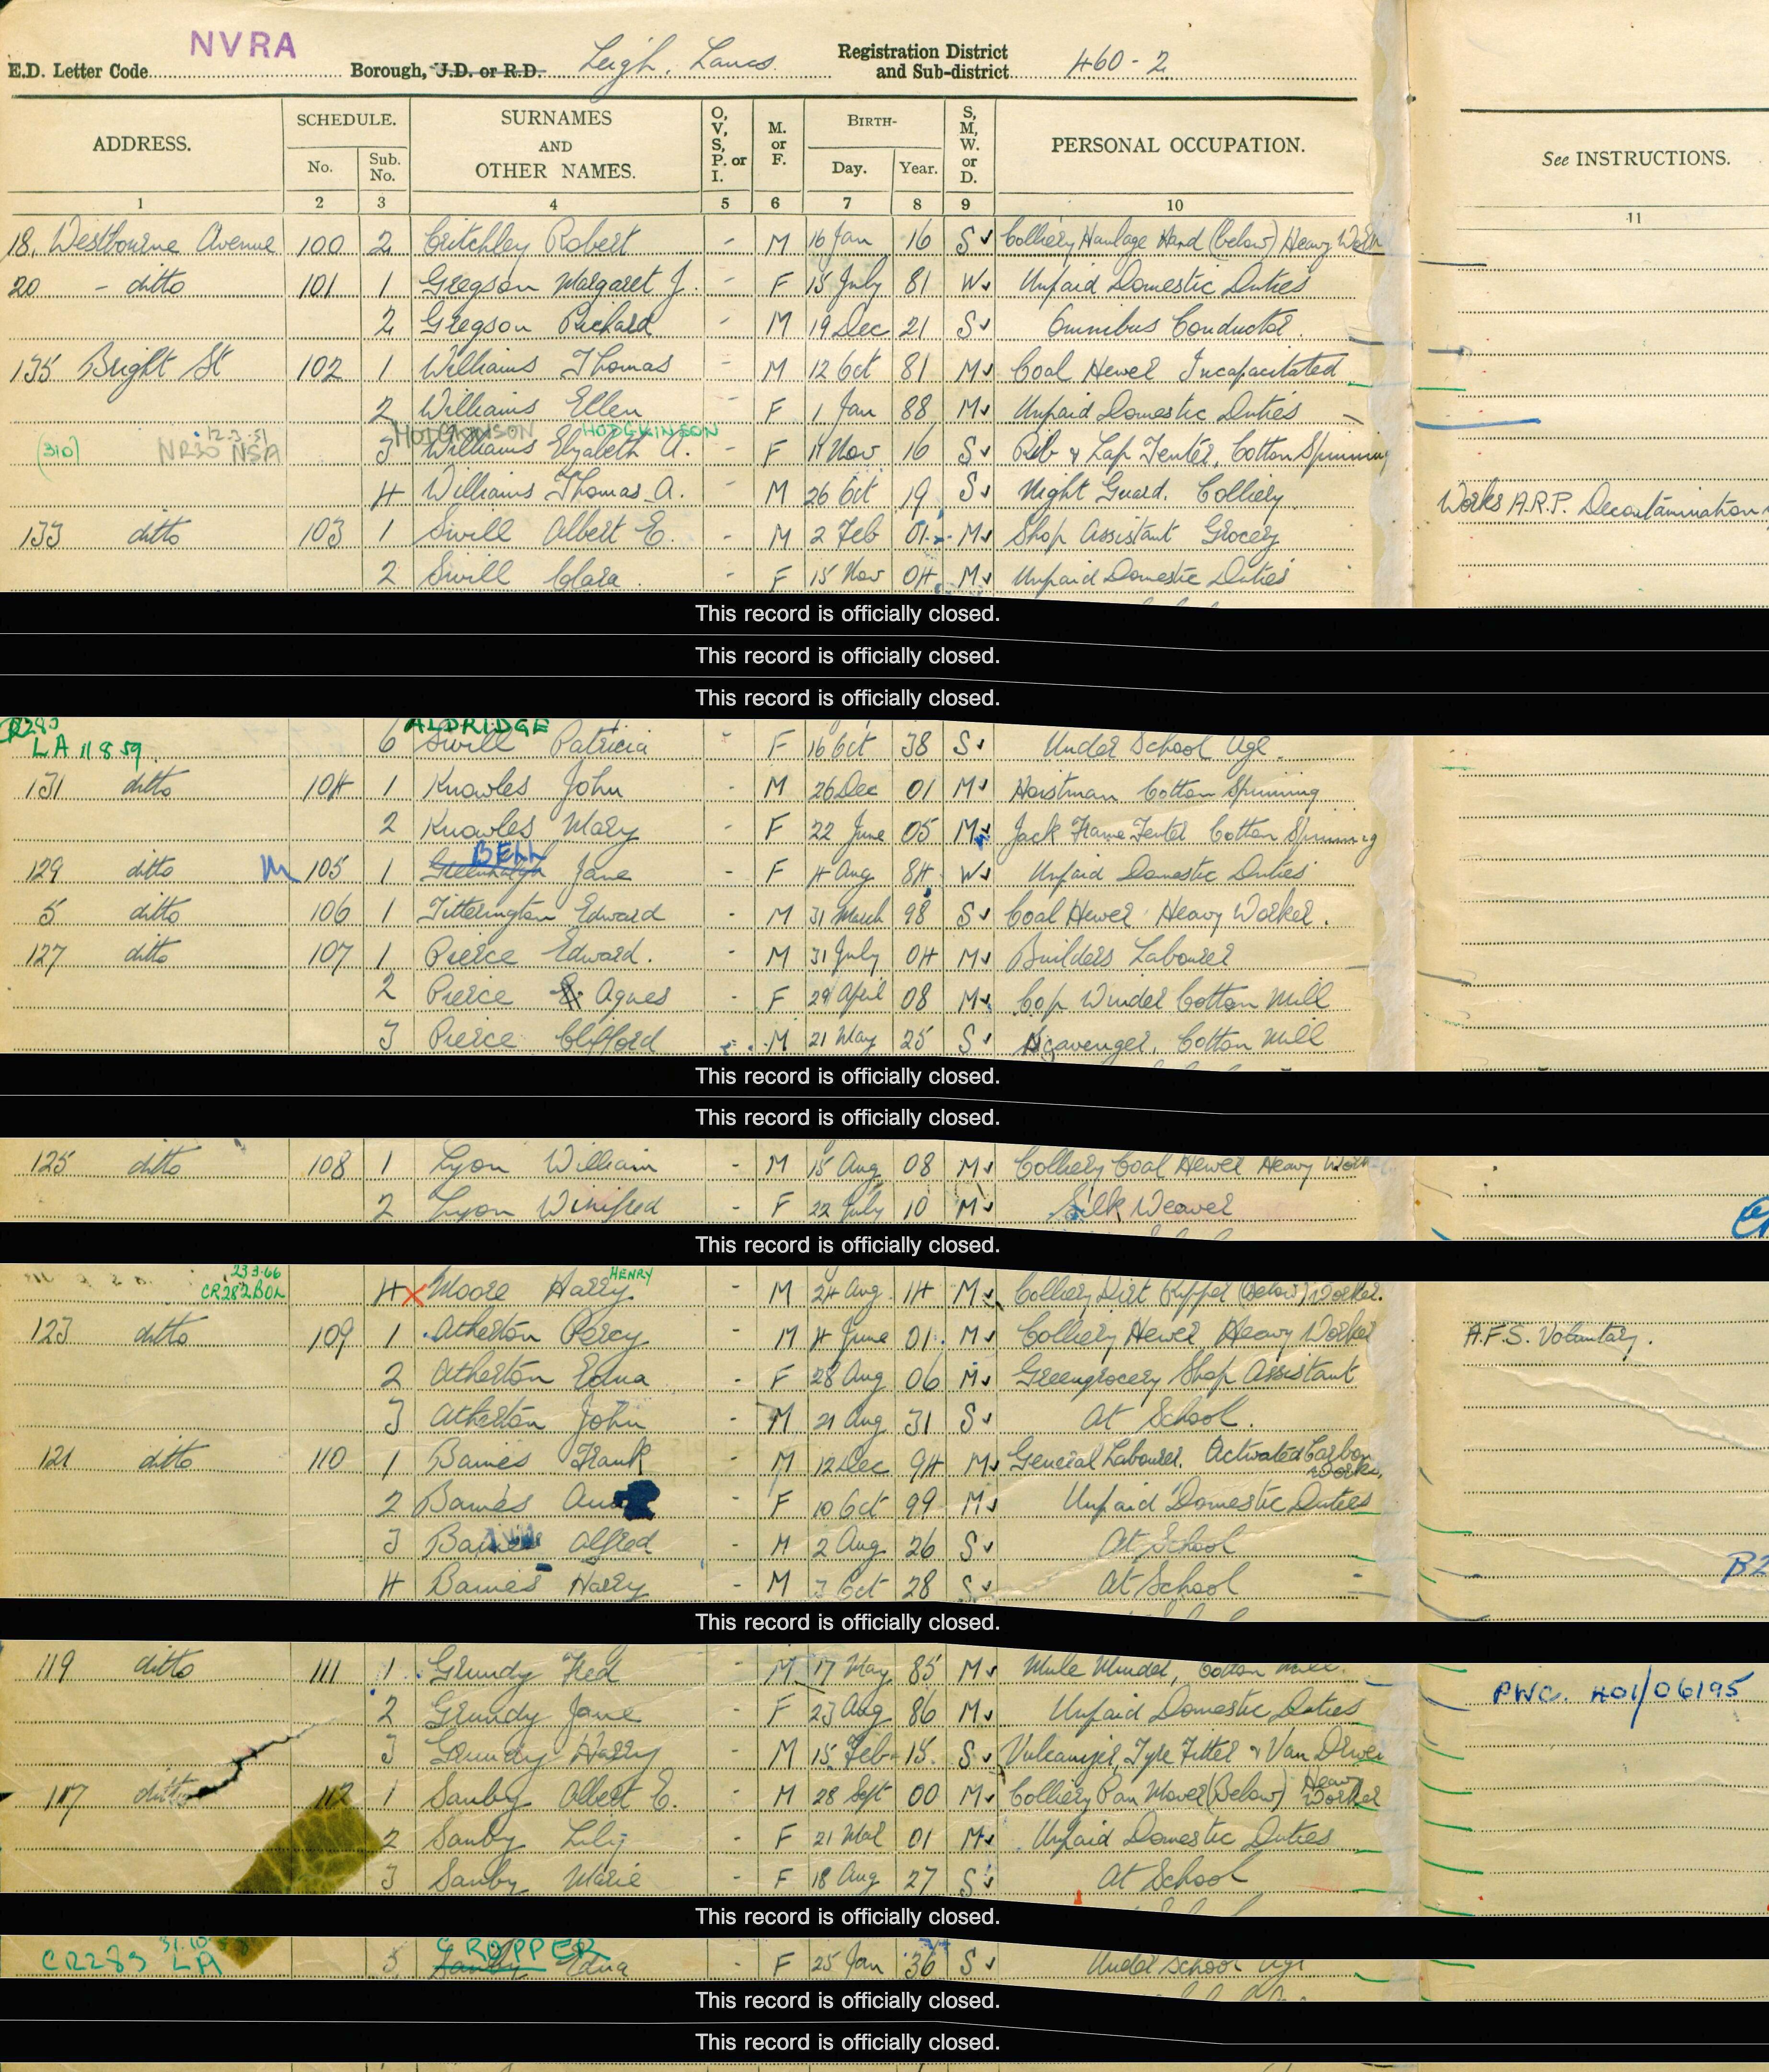 NVRA
E.D. Letter Code Borough, U.D. or R.D. Leigh, Lancs. Registration District and Sub-district 460-2
ADDRESS. SCHEDULE. No. Sub. No. SURNAMES AND OTHER NAMES. O, V, S, P. or I. M. or F. BIRTH- Day. Year. S, M, W. or D. PERSONAL OCCUPATION. See INSTRUCTIONS.
1 2 3 4 5 6 7 8 9 10 11
18, Westbourne Avenue 100 2 Critchley Robert - M 16 Jan 16 S Colliery Haulage Hand (below) Heavy Work
20 - ditto 101 1 Gregson Margaret J. - F 15 July 81 W Unpaid Domestic Duties
2 Gregson Richard - M 19 Dec 21 S Omnibus Conductor.
135 Bright St 102 1 Williams Thomas - M 12 Oct 81 M Coal Hewer Incapacitated
2 Williams Ellen - F 1 Jan 88 M Unpaid Domestic Duties
12.3.51 HODGKINSON HODGKINSON
(310) NR30 NSA 3 Williams Elizabeth A. - F 11 Nov 16 S Rib & Lap Tenter, Cotton Spinning
4 Williams Thomas A. - M 26 Oct 19 S Night Guard. Colliery
Works A.R.P. Decontamination
133 ditto 103 1 Swill Albert E. - M 2 Feb 01 M Shop Assistant Grocery
2 Swill Clara. - F 15 Nov 04 M Unpaid Domestic Duties
This record is officially closed.
This record is officially closed.
This record is officially closed.
CR283 ALDRIDGE
LA 11 8 59 6 Swill Patricia - F 16 Oct 38 S Under School Age.
131 ditto 104 1 Knowles John - M 26 Dec 01 M Hoistman Cotton Spinning
2 Knowles Mary - F 22 June 05 M Jack Frame Tenter Cotton Spinning
BELL
129 ditto M 105 1 Greenhalgh Jane - F 4 Aug 84 W Unpaid Domestic Duties
5 ditto 106 1 Titterington Edward - M 31 March 98 S Coal Hewer Heavy Worker.
127 ditto 107 1 Pierce Edward. - M 31 July 04 M Builders Labourer
2 Pierce Agnes - F 29 April 08 M Cop Winder Cotton Mill
3 Pierce Clifford - M 21 May 25 S Scavenger, Cotton Mill
This record is officially closed.
This record is officially closed.
125 ditto 108 1 Lyon William - M 15 Aug 08 M Colliery Coal Hewer Heavy Work
2 Lyon Winifred - F 22 July 10 M Silk Weaver
This record is officially closed.
23.3.66 HENRY
CR282 BOL 4 X Moore Harry - M 24 Aug 14 M Colliery Dirt Ripper (Below) Worker.
123 ditto 109 1 Atherton Percy M 4 June 01 M Colliery Hewer Heavy Worker A.F.S. Voluntary.
2 Atherton Edna - F 28 Aug 06 M Greengrocery Shop Assistant
3 Atherton John - M 21 Aug 31 S At School.
121 ditto 110 1 Barnes Frank - M 12 Dec 94 M General Labourer. Activated Carbon Works.
2 Barnes - F 10 Oct 99 M Unpaid Domestic Duties
3 Barnes Alfred - M 2 Aug 26 S At School
4 Barnes Harry - M 3 Oct 28 S At School
B2
This record is officially closed.
119 ditto 111 1 Grundy Fred - M 17 May 85 M Mule Minder, Cotton Mill.
PWC. H01/06195
2 Grundy Jane - F 23 Aug 86 M Unpaid Domestic Duties
3 Grundy Harry - M 15 Feb 15 S Vulcanizer, Tyre Fitter & Van Driver
117 ditto 112 1 Sanby Albert E. - M 28 Sept 00 M Colliery Pan Mover (Below) Heavy Worker
2 Sanby Lily - F 21 Mar 01 M Unpaid Domestic Duties
3 Sanby Marie - F 18 Aug 27 S At School
This record is officially closed.
31.10 CROPPER
CR283 LA 5 Sanby Edna - F 25 Jan 36 S Under school age
This record is officially closed.
This record is officially closed.